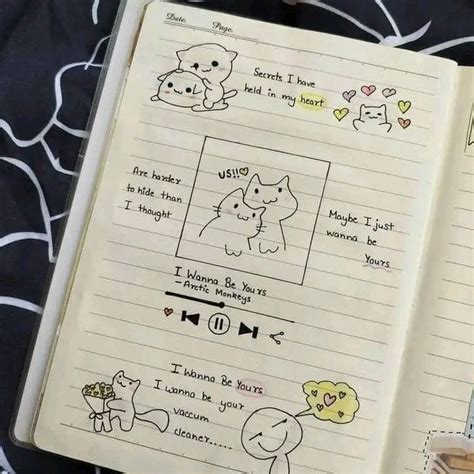 Date. Page.
Secrets I have
held in my heart
Are harder
to hide than
I thought
US!!
Maybe I just
wanna be
Yours
I Wanna Be Yours
- Arctic Monkeys
I Wanna Be Yours
I wanna be your
vaccum
cleaner.....